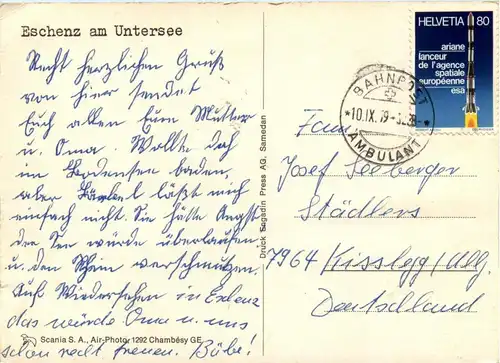 Eschenz am Untersee
Recht herzlichen Gruß
von hier sendet
Euch allen Eure Mutter
u. Oma. Wollte doch
im Bodensee baden,
aber läßt mich
einfach nicht. Sie hätte Angst
der See würde überlaufen
u. den Rhein verschmutzen.
Auf Wiedersehen in
das würde Oma u. uns
schon recht freuen.
Scania S. A., Air-Photo, 1292 Chambésy GE
Druck Engadin Press AG, Samedan
HELVETIA 80
ariane
lanceur
de l'agence
spatiale
européenne
esa
BAHNPOST
*10.IX.79-
AMBULANT
Fam.
Josef Seeberger
Städlers
7964 Kisslegg/Allg.
Deutschland